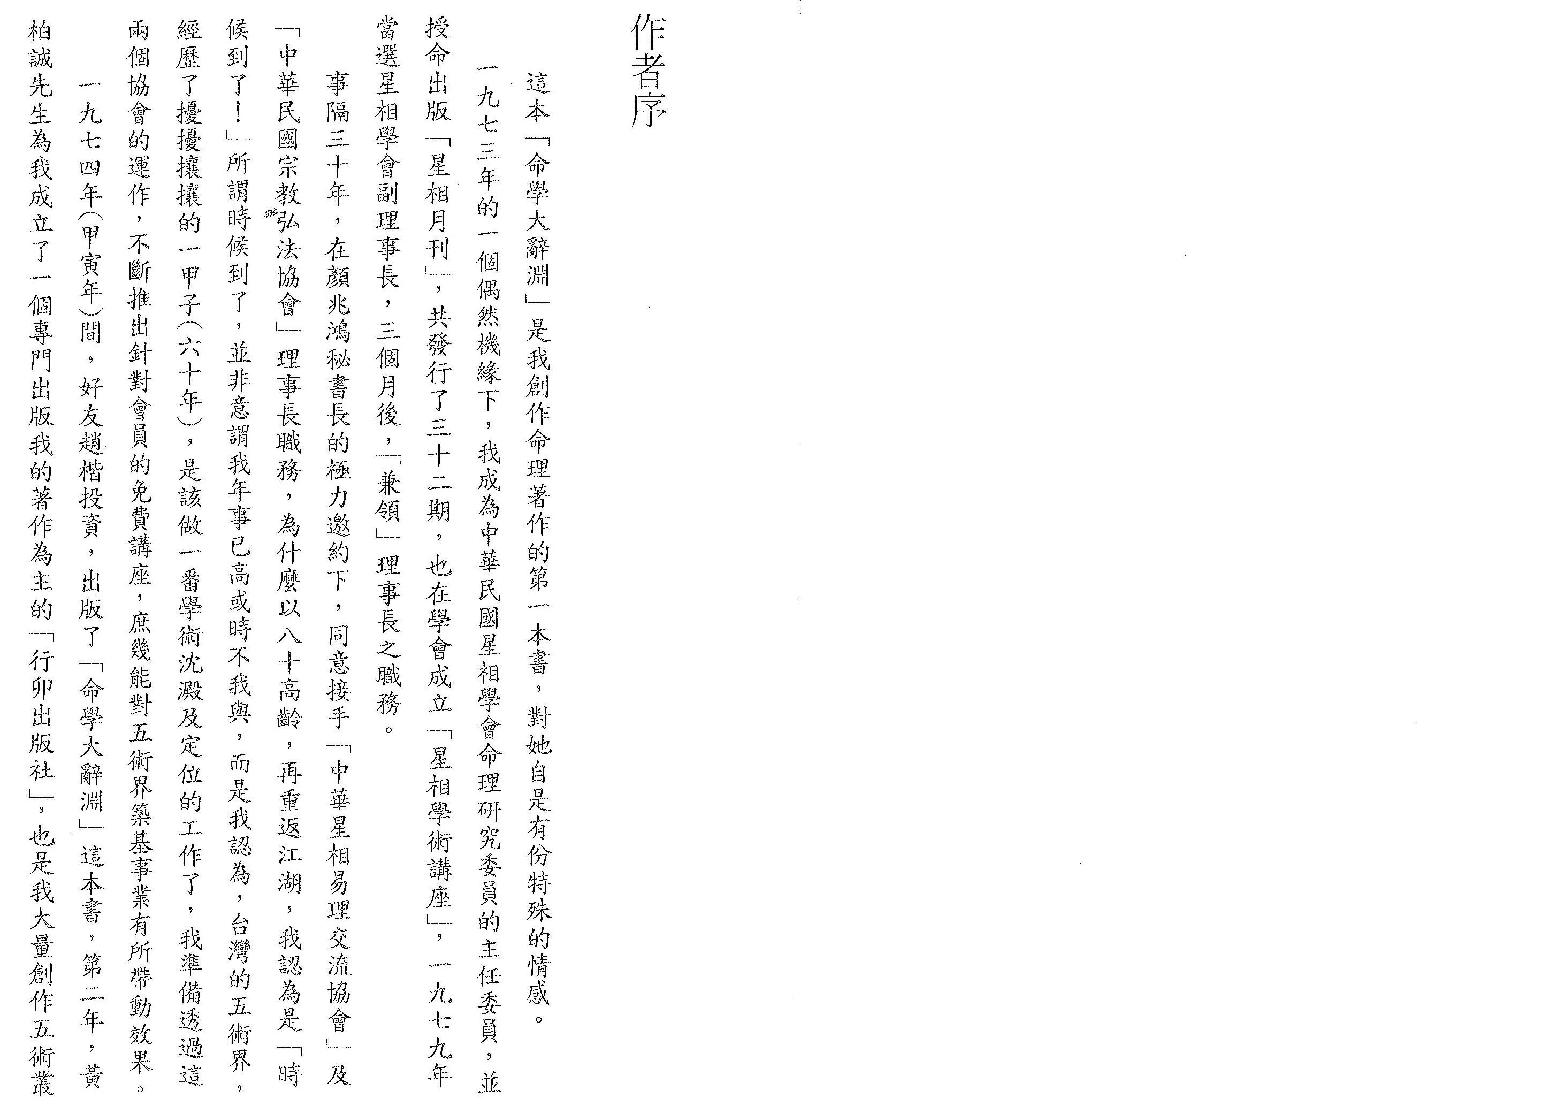 作者序
這本「命學大辭淵」是我創作命理著作的第一本書，對她自是有份特殊的情感。
一九七三年的一個偶然機緣下，我成為中華民國星相學會命理研究委員的主任委員，並
授命出版「星相月刊」，共發行了三十二期，也在學會成立「星相學術講座」，一九七九年
當選星相學會副理事長，三個月後，「兼領」理事長之職務。
事隔三十年，在顏兆鴻秘書長的極力邀約下，同意接手「中華星相易理交流協會」及
「中華民國宗教弘法協會」理事長職務，為什麼以八十高齡，再重返江湖，我認為是「時
候到了！」所謂時候到了，並非意謂我年事已高或時不我與，而是我認為，台灣的五術界，
經歷了擾擾攘攘的一甲子（六十年），是該做一番學術沈澱及定位的工作了，我準備透過這
兩個協會的運作，不斷推出針對會員的免費講座，庶幾能對五術界築基事業有所帶動效果。
一九七四年（甲寅年）間，好友趙楷投資，出版了「命學大辭淵」這本書，第二年，黃
柏誠先生為我成立了一個專門出版我的著作為主的「行卯出版社」，也是我大量創作五術叢